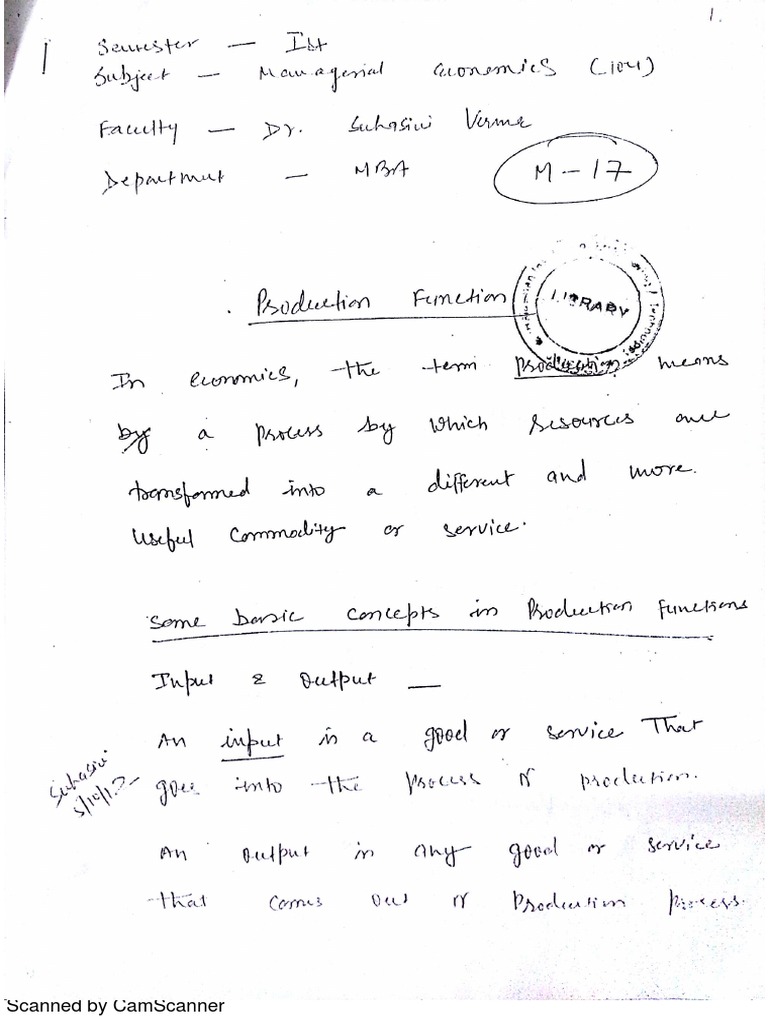 1.
Semester — Ist
Subject — Managerial Economics (104)
Faculty — Dr. Suhasini Verma
Department — MBA
M-17
Production Function
LIBRARY
In economics, the term production means
by a process by which resources are
transformed into a different and more.
useful commodity or service.
Some basic concepts in Production functions
Input & Output —
An input is a good or service that
goes into the process of production.
Suhasini
An output is any good or service
that comes out of Production process.
Scanned by CamScanner